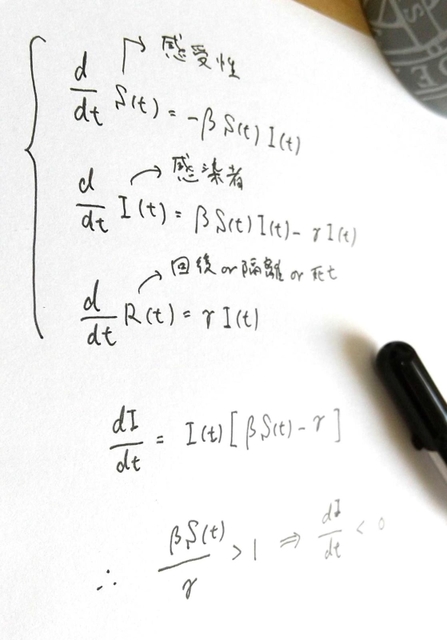 感受性
d/dt S(t) = -β S(t) I(t)
感染者
d/dt I(t) = β S(t) I(t) - γ I(t)
回復 or 隔離 or 死亡
d/dt R(t) = γ I(t)
dI/dt = I(t) [β S(t) - γ]
∴ βS(t)/γ > 1 ⇒ dI/dt < 0